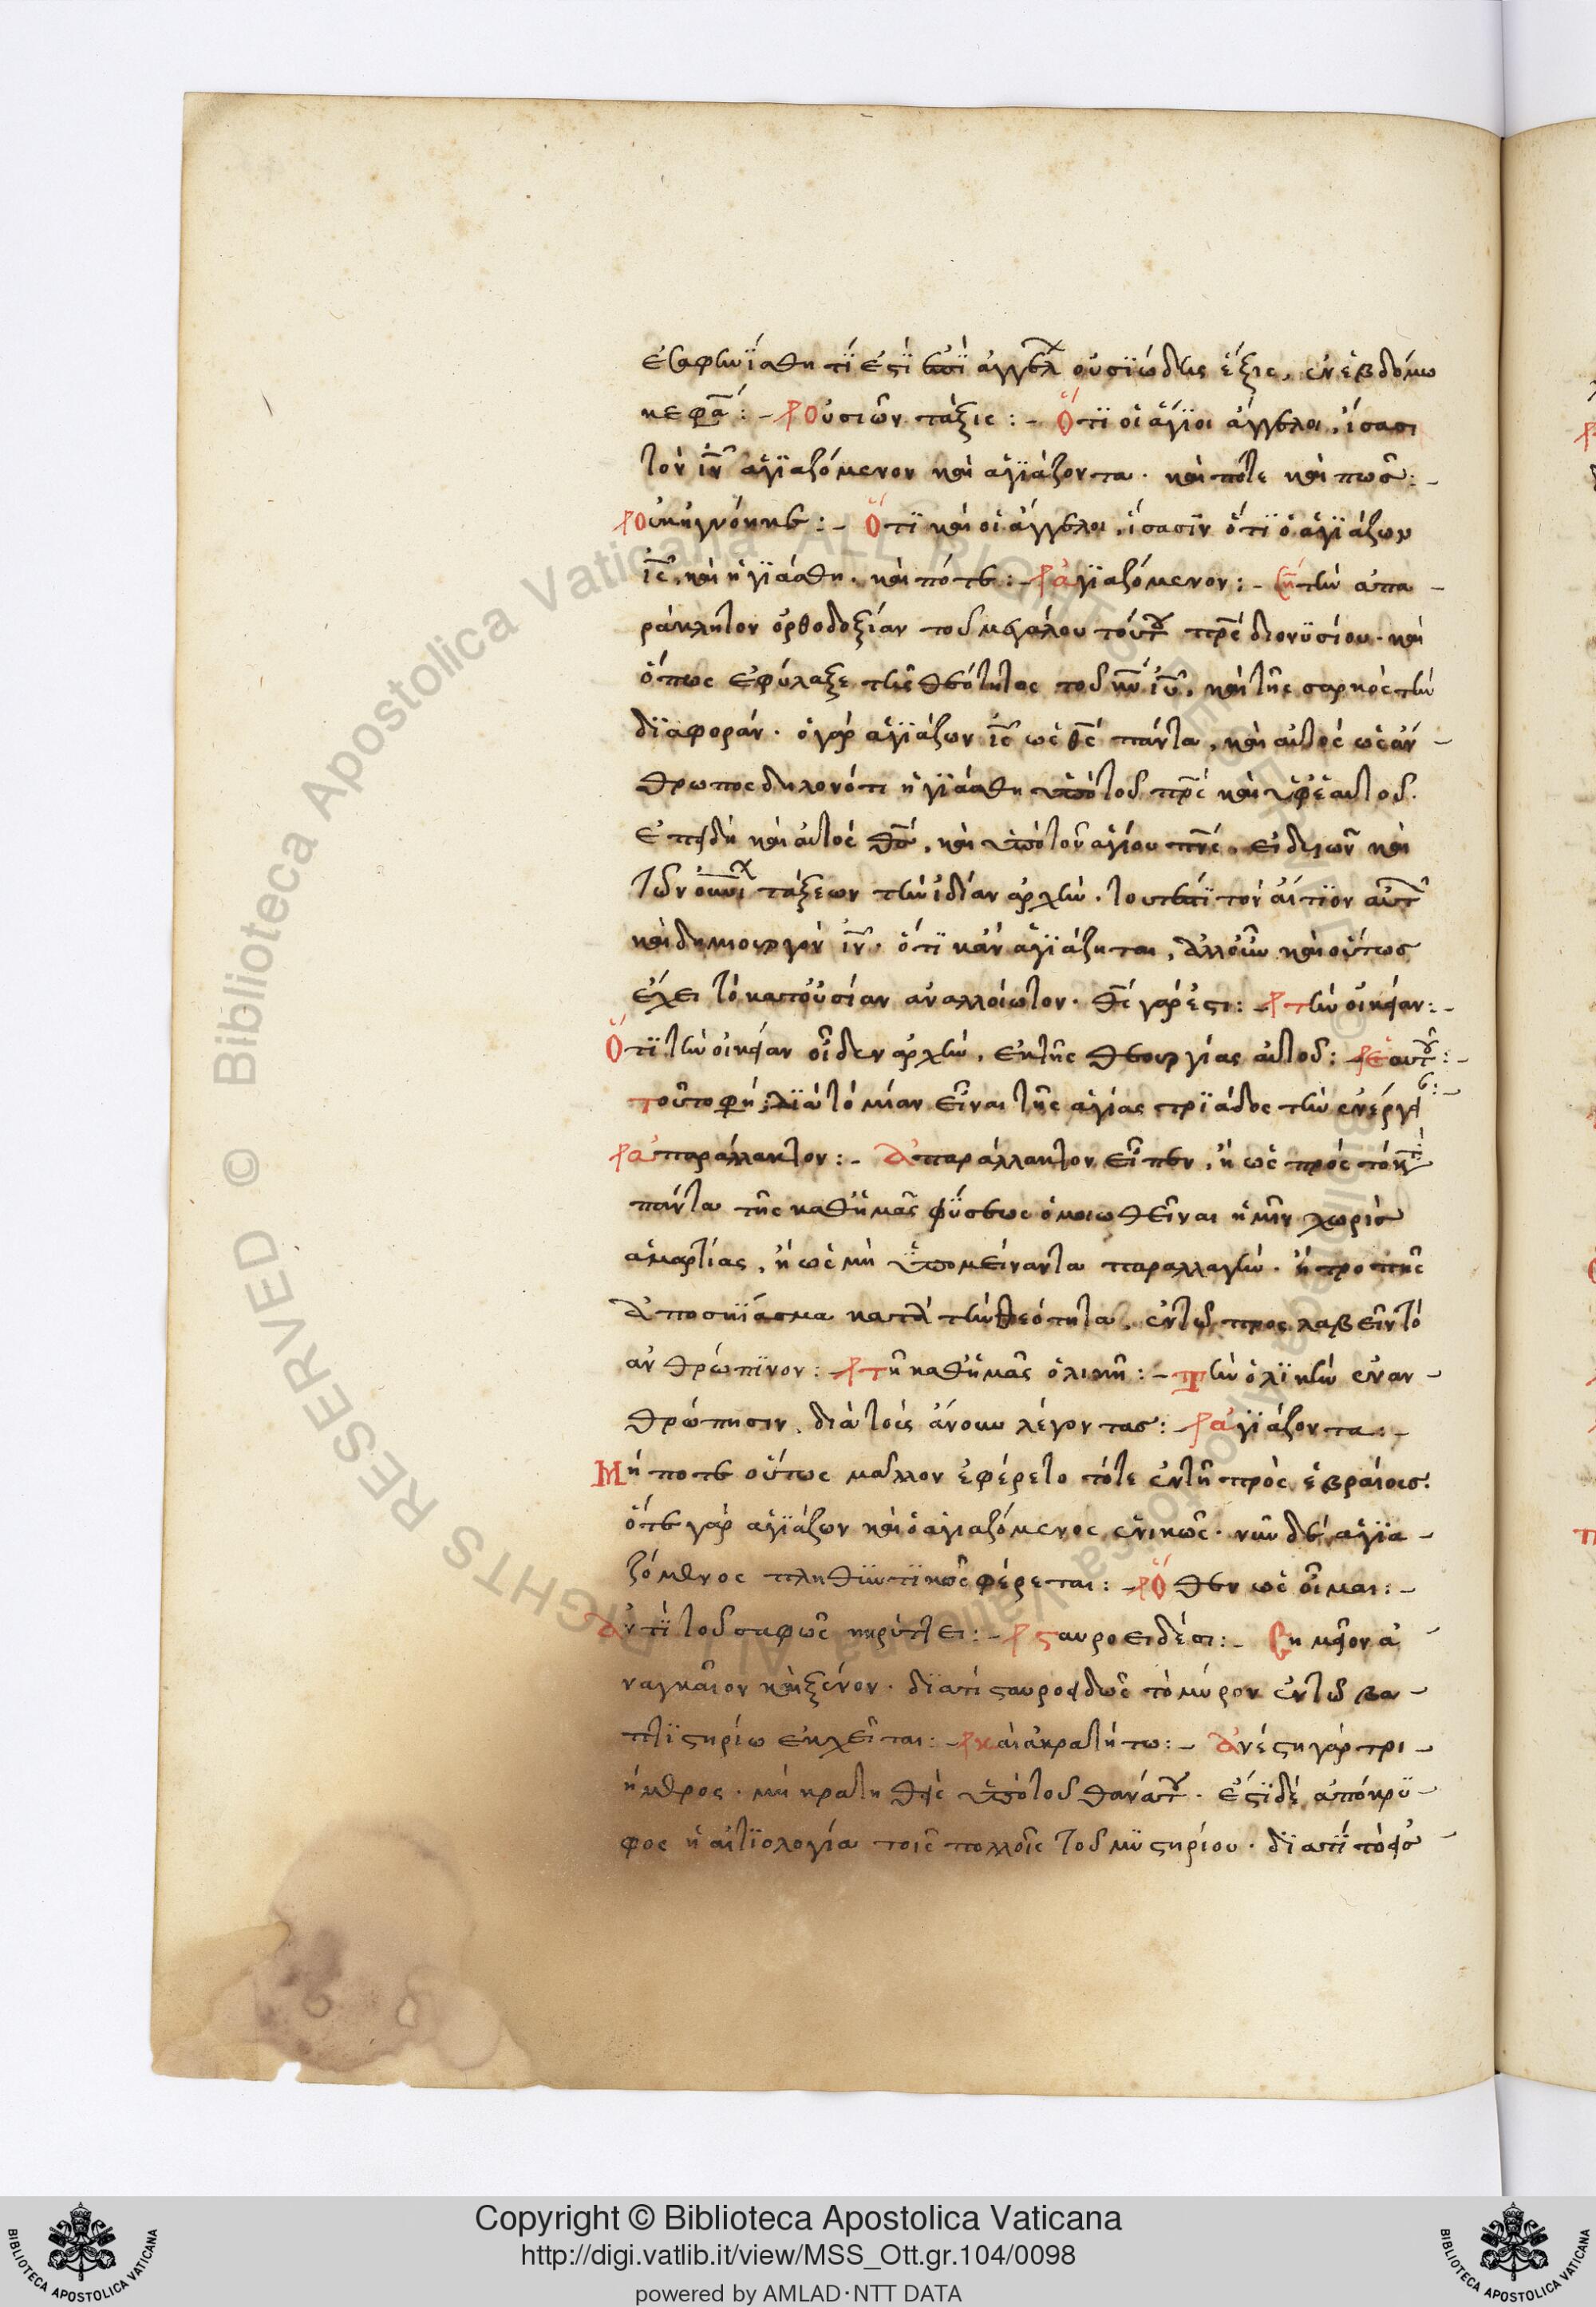 ἐσαφηνίσθη τί ἐστι ἐπὶ ἀγγελ οὐσιώδης ἕξις, ἐν ἑβδόμω
κεφα :- Οὐσιῶν τάξις :- Ὅτι οἱ ἅγιοι ἄγγελοι, ἴσασι
τὸν ἰν ἁγιαζόμενον καὶ ἁγιάζοντα · καὶ πότε καὶ πῶς :-
Οὐκ ἠγνόηκε :- Ὅτι καὶ οἱ ἄγγελοι, ἴσασιν ὅτι ὁ ἁγιάζων
ἰς, καὶ ἡγιάσθη · καὶ πότε :- ἁγιαζόμενον :- τὴν ἀπα-
ράκλητον ὀρθοδοξίαν τοῦ μεγάλου τούτου πρς διονυσίου · καὶ
ὅπως ἐφύλαξε τῆς θεότητος τοῦ κυ ἰυ, καὶ τῆς σαρκὸς τὴν
διαφοράν · ὁ γὰρ ἁγιάζων ἰς ὡς θς πάντα, καὶ αὐτὸς ὡς ἄν-
θρωπος δηλονότι ἡγιάσθη ὑπὸ τοῦ πρς καὶ ὑφ' ἑαυτοῦ.
ἐπειδὴ καὶ αὐτὸς θς, καὶ ὑπὸ τοῦ ἁγίου πνς, εἰδυιῶν καὶ
τῶν οὐνι τάξεων τὴν ἰδίαν ἀρχὴν · τουτέστι τὸν αἴτιον αὐτ
καὶ δημιουργὸν ἰν · ὅτι κἂν ἁγιάζηται, ἀλλ' οὖν καὶ οὕτως
ἔχει τὸ κατ' οὐσίαν ἀναλλοίωτον · θς γάρ ἐστι :- τὴν οἰκείαν :-
Ὅτι τὴν οἰκείαν οἶδεν ἀρχὴν, ἐκ τῆς θεουργίας αὐτοῦ : ἑαυτοῦ :-
τοῦτο φη, διὰ τὸ μίαν εἶναι τῆς ἁγίας τριάδος τὴν ἐνέργει :-
ἀπαράλλακτον :- Ἀπαράλλακτον εἶπεν, ἢ ὡς πρὸς τὸ κατὰ
πάντα τῆς καθ' ἡμᾶς φύσεως ὁμοιωθεῖναι ἡμῖν χωρὶς
ἁμαρτίας, ἢ ὡς μὴ ὑπομείναντα παραλλαγὴν · ἢ τροπῆς
ἀποσκίασμα κατὰ τὴν θεότητα, ἐν τῶ προσλαβεῖν τὸ
ἀνθρώπινον : τῆ καθ' ἡμᾶς ὁλικῆ :- Τὴν ὁλικὴν ἐναν-
θρώπησιν, διὰ τοὺς ἄνουν λέγοντας : ἁγιάζοντα :-
Μήποτε οὕτως μᾶλλον ἐφέρετο τότε ἐν τῆ πρὸς ἑβραίοις.
ὅτε γὰρ ἁγιάζων καὶ ὁ ἁγιαζόμενος ἑνικῶς · νῦν δὲ ἁγια-
ζόμενος πληθυντικῶς φέρεται : Ὅθεν ὡς οἶμαι :-
Ἀντὶ τοῦ σαφῶς κηρύττει :- σταυροειδέσι :- Σημεῖον ἀ-
ναγκαῖον καὶ ξένον · διατί σταυροειδῶς τὸ μύρον ἐν τῶ βα-
πτιστηρίω ἐκχεῖται :- καὶ ἀκρατήτω :- Ἀνέστη γὰρ τρι-
ήμερος · μὴ κρατηθεὶς ὑπὸ τοῦ θανάτου · ἔστι δὲ ἀπόκρυ-
φος ἡ αἰτιολογία τοῖς πολλοῖς τοῦ μυστηρίου · διατί τὸ εἰσ
Copyright © Biblioteca Apostolica Vaticana
http://digi.vatlib.it/view/MSS_Ott.gr.104/0098
powered by AMLAD·NTT DATA